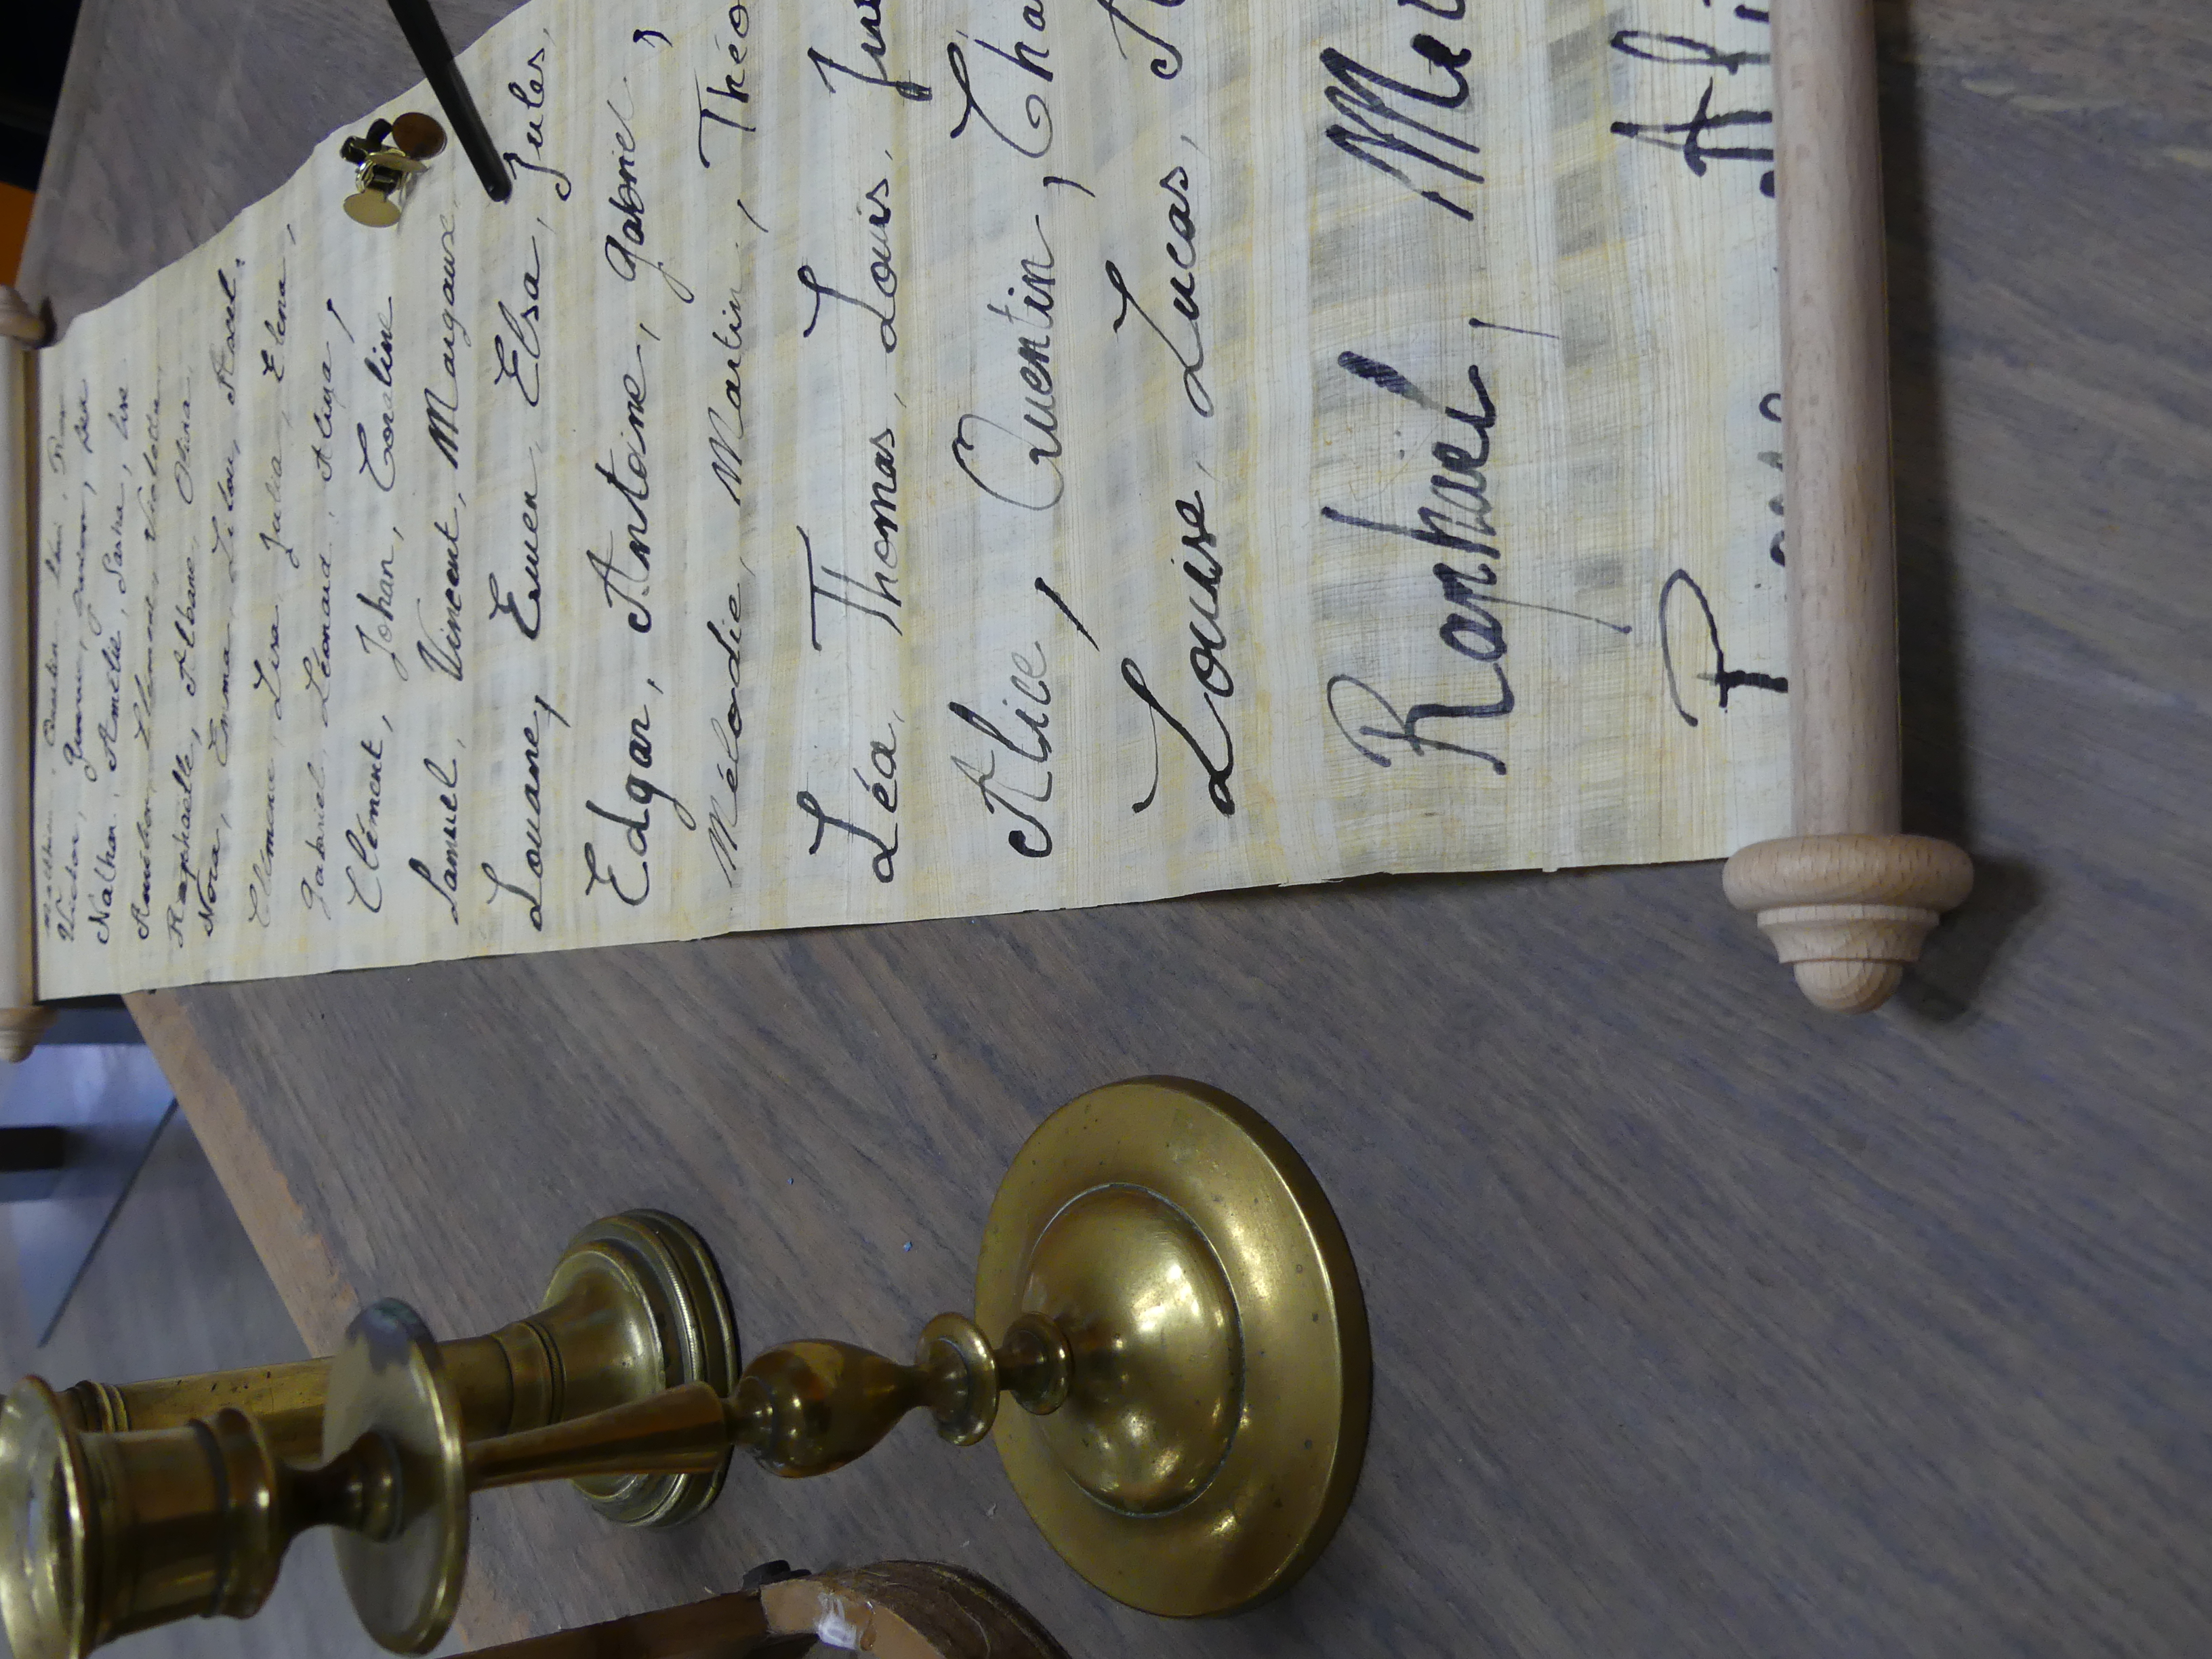 Nathan, Quentin,
Victor,
Nathan, Amélie, Sasha, Lise
Clément, Violette,
Raphaëlle, Albane,
Nora, Emma, Lilou, Axel,
Clémence, Lisa, Julia, Elena,
Gabriel, Léonard,
Clément, Johan, Coraline
Samuel, Vincent, Margause,
Louane, Ewen, Elsa, Jules,
Edgar, Antoine, Gabriel,
Mélodie, Martin, Théo
Léa, Thomas, Louis,
Alice, Quentin,
Louise, Lucas,
Raphaël,